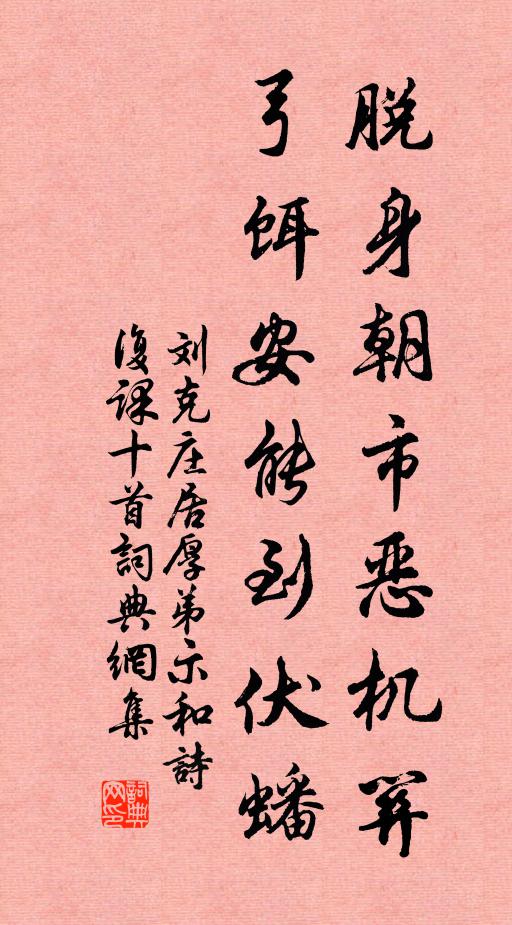 脱身朝市恶机穽
弓饵安能到伏蟠
刘克庄居厚弟示和詩
復課十首詞典網集
詞典网印